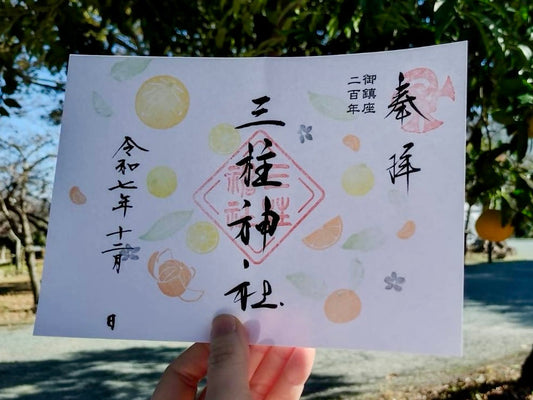 奉拝
御鎮座
二百年
三柱神社
令和七年十二月
日